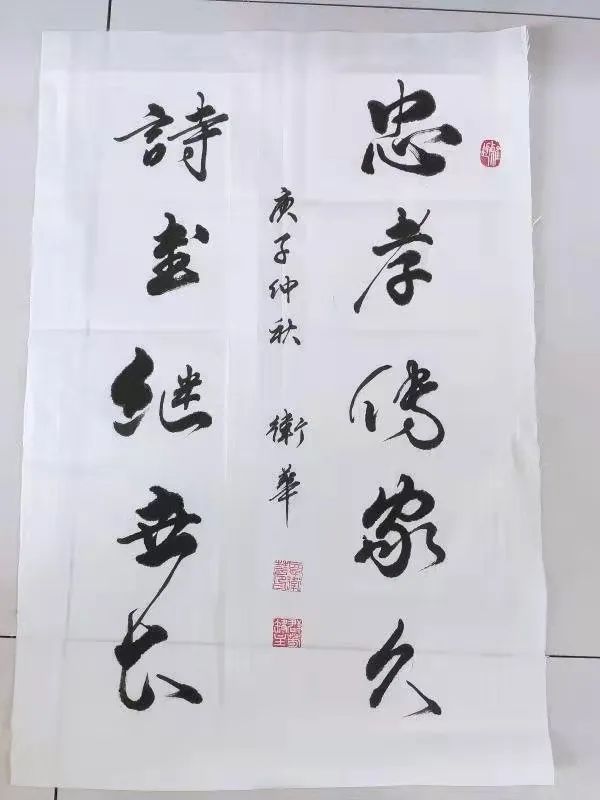 忠孝传家久
詩書継世长
庚子仲秋 衛華